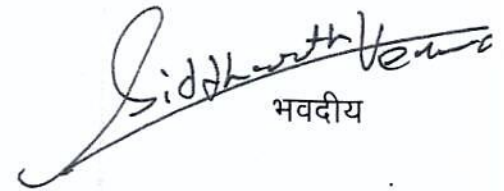 Siddharth Verma
भवदीय